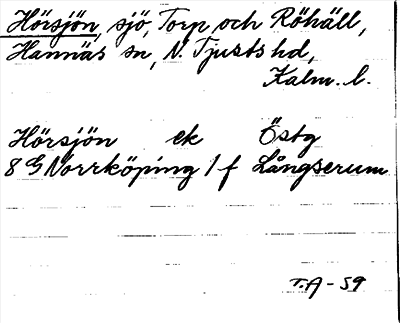 Hörsjön, sjö, Torp och Röhäll,
Hannäs sn, N. Tjusts hd,
Kalm. l.
Hörsjön ek Östg
8 G Norrköping 1 f Långserum
T.A - 59